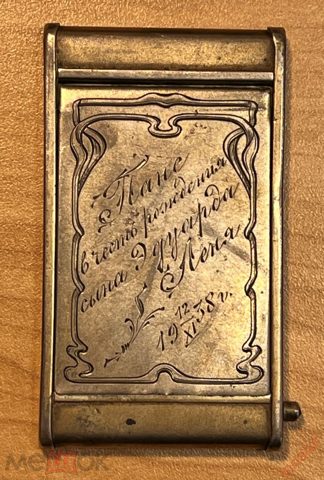 Папе
в честь рождения
сына Эдуарда
Леня
19 12/XI 38 г.
МЕШОК